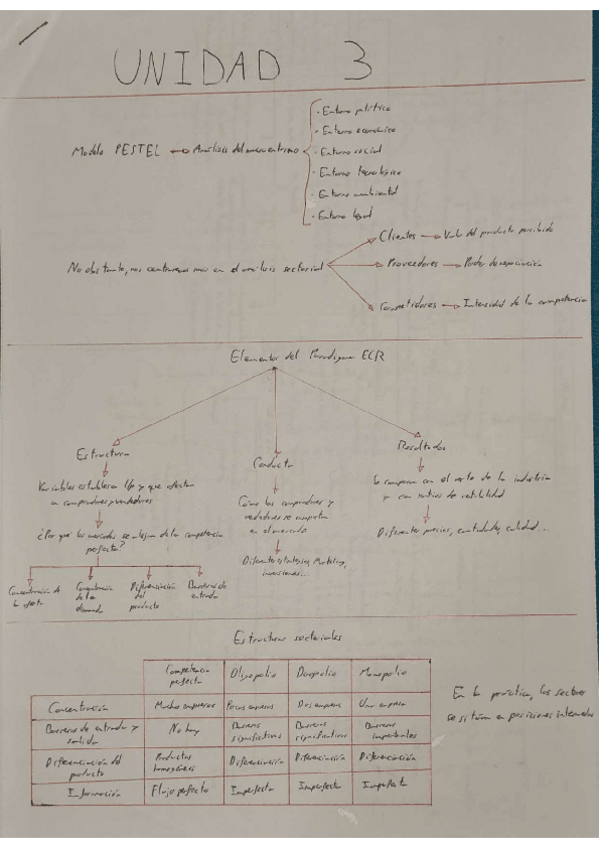 UNIDAD 3
Modelo PESTEL → Análisis del macroentorno
· Entorno político
· Entorno económico
· Entorno social
· Entorno tecnológico
· Entorno ambiental
· Entorno legal
No obstante, nos centraremos más en el análisis sectorial
Clientes → Valor del producto percibido
Proveedores → Poder de negociación
Competidores → Intensidad de la competencia
Elementos del Paradigma ECR
Estructura
Variables estables a l/p y que afectan
a compradores y vendedores
¿Por qué los mercados se alejan de la competencia
perfecta?
Concentración de
la oferta
Concentración
de la
demanda
Diferenciación
del
producto
Barreras de
entrada
Conducta
Cómo los compradores y
vendedores se comportan
en el mercado
Diferentes estrategias, Marketing,
inversiones...
Resultados
Se comparan con el resto de la industria
y con ratios de rentabilidad
Diferentes precios, cantidades, calidad...
Estructuras sectoriales
Competencia
perfecta
Oligopolio
Duopolio
Monopolio
Concentración
Muchas empresas
Pocas empresas
Dos empresas
Una empresa
Barreras de entrada y
salida
No hay
Barreras
significativas
Barreras
significativas
Barreras
importantes
Diferenciación del
producto
Productos
homogéneos
Diferenciación
Diferenciación
Diferenciación
Información
Flujo perfecto
Imperfecta
Imperfecta
Imperfecta
En la práctica, los sectores
se sitúan en posiciones intermedias